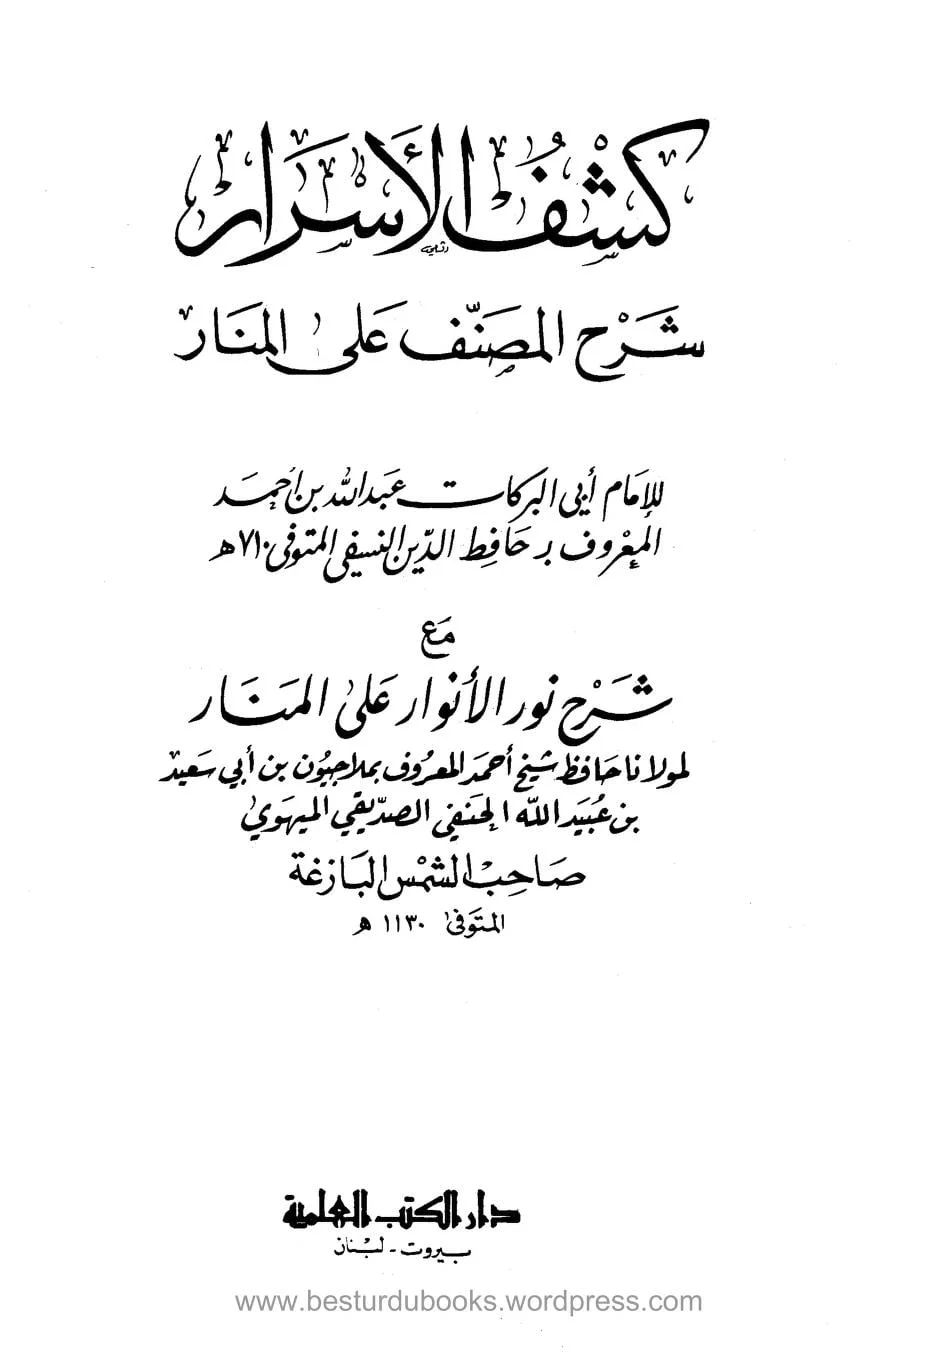 كشف الأسرار
شرح المصنف على المنار
للإمام أبي البركات عبدالله بن أحمد
المعروف بـ حافظ الدين النسفي المتوفى ٧١٠ هـ
مع
شرح نور الأنوار على المنار
لمولانا حافظ شيخ أحمد المعروف بملاجيون بن أبي سعيد
بن عبيد الله الحنفي الصديقي الميهوي
صاحب الشمس البازغة
المتوفى ١١٣٠ هـ
دار الكتب العلمية
بيروت - لبنان
www.besturdubooks.wordpress.com